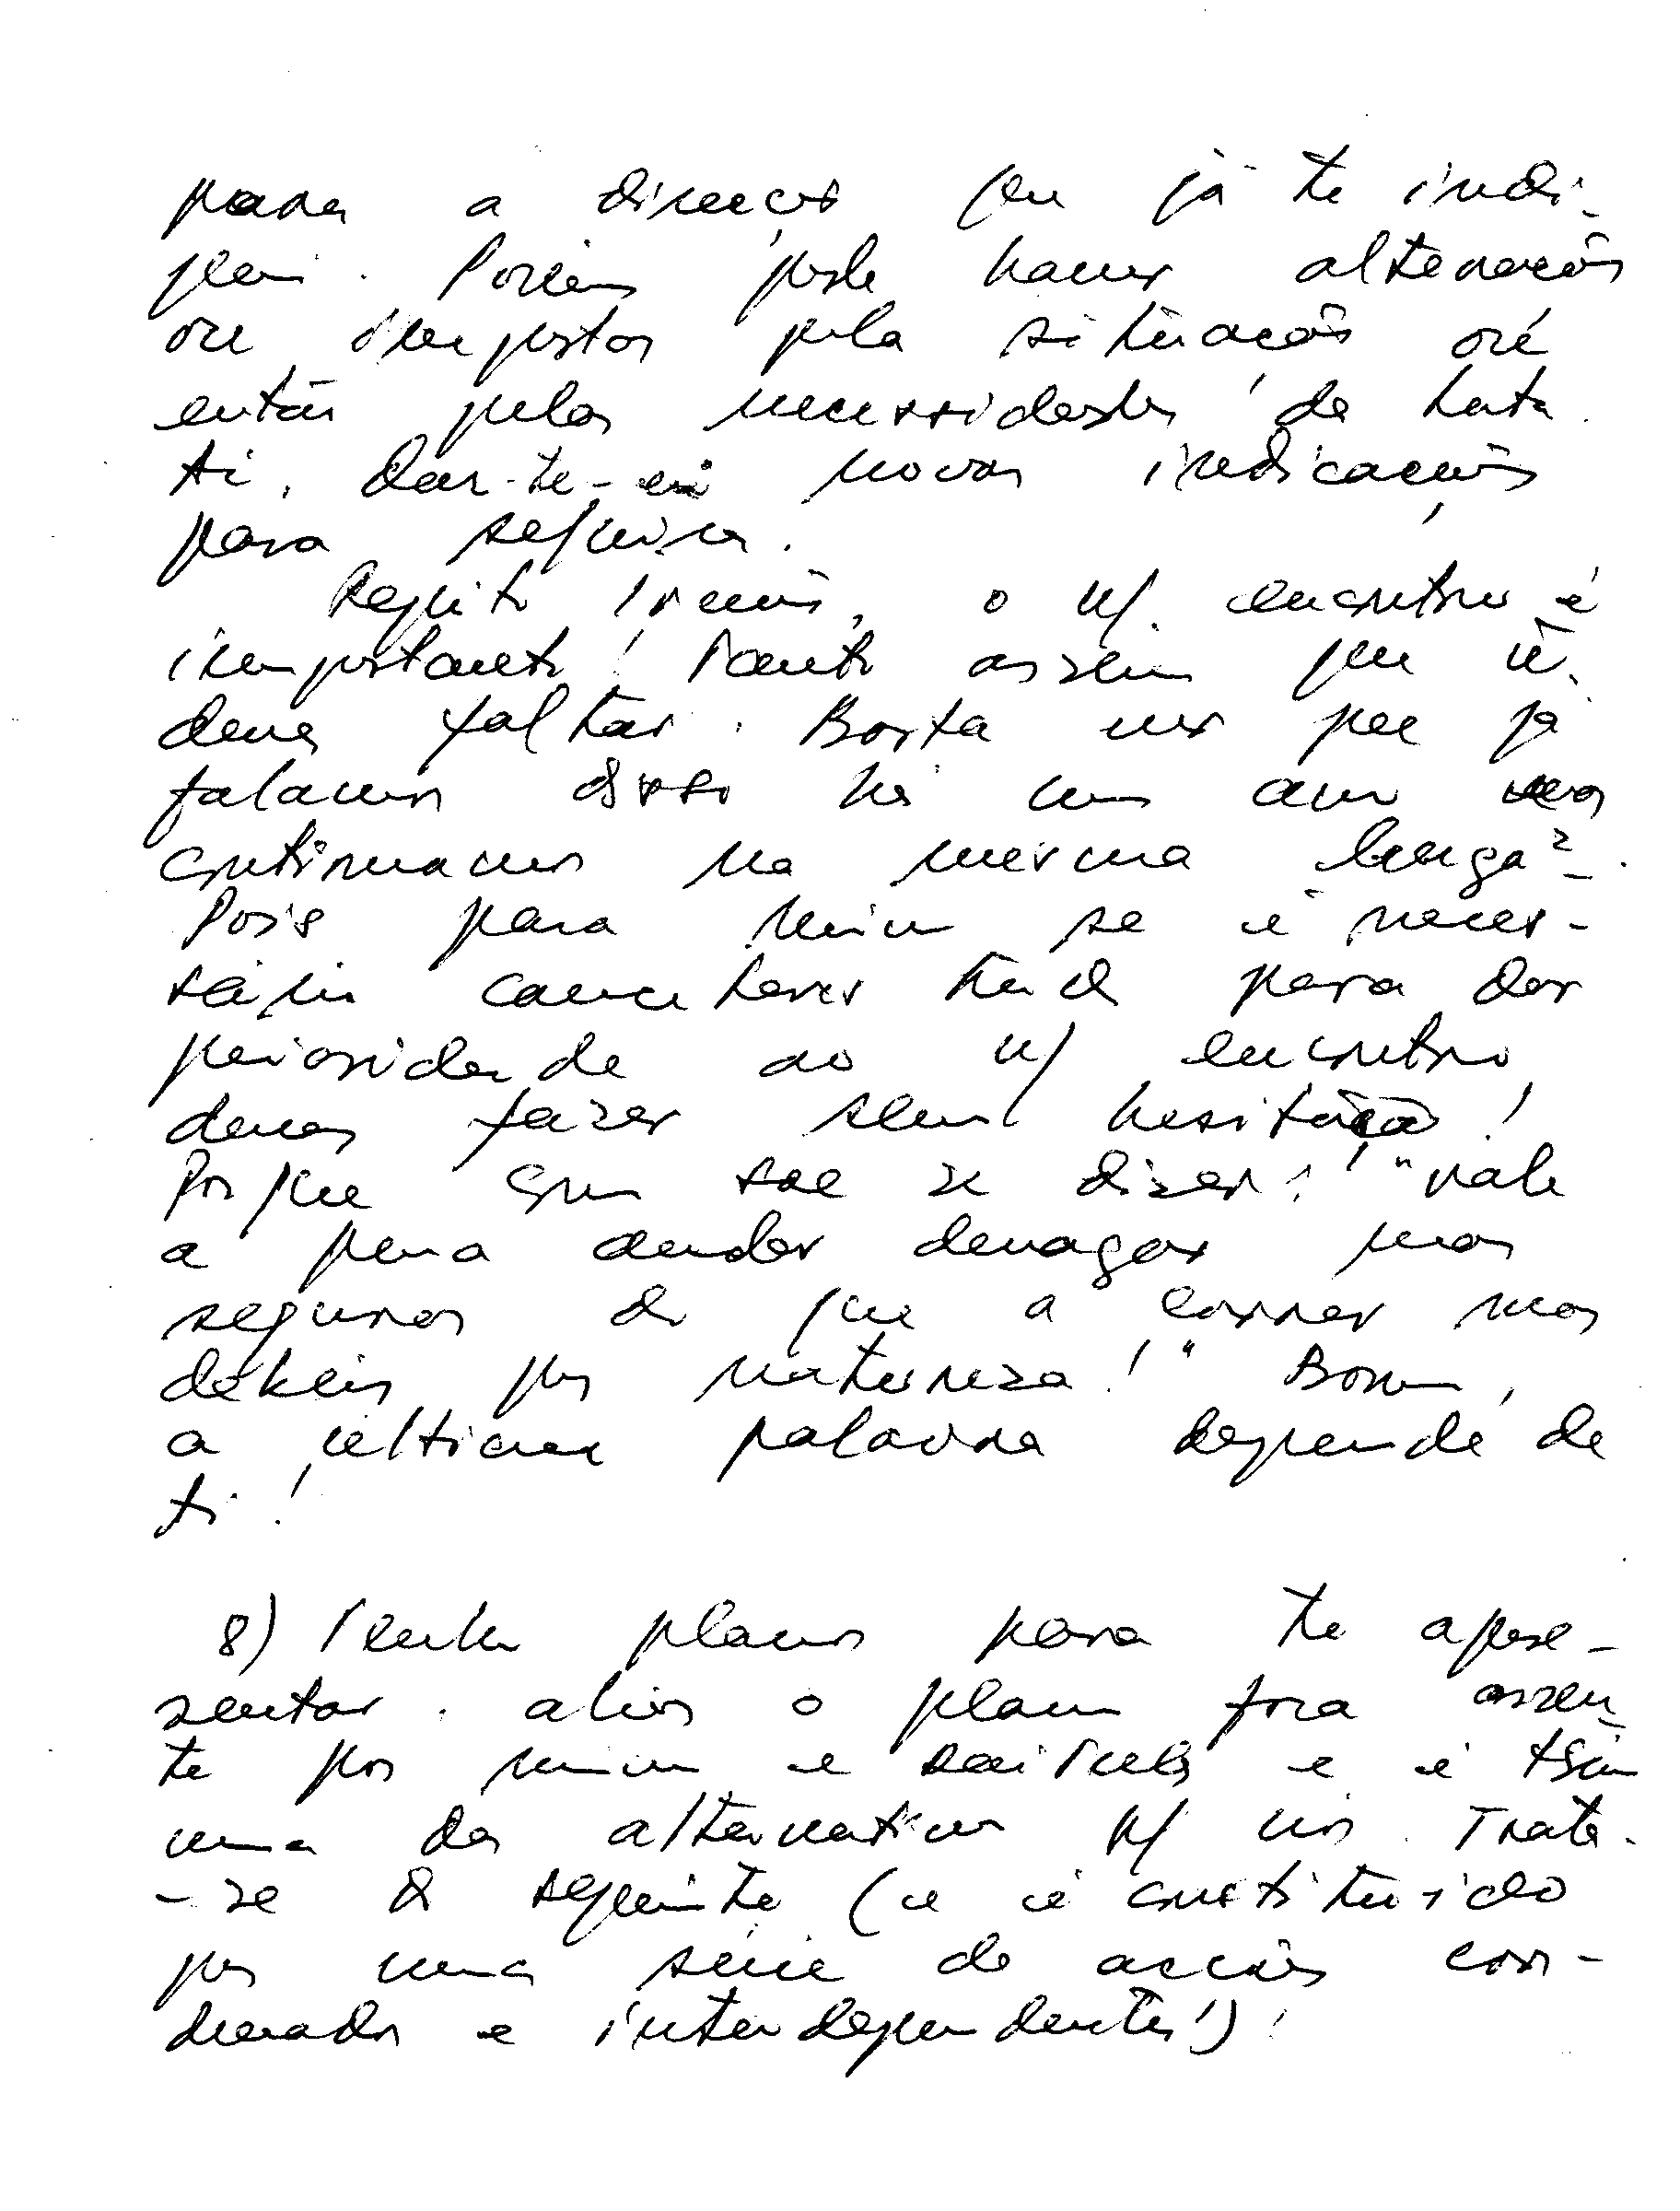 para a direcção que já te indi-
quei. Porém pode haver alterações
ou impostas pela situação ou
então pelas necessidades da luta.
Aí, dar-te-ei novas indicações
para seguires.
Repito Irmão, o n/. encontro é
importante! Tanto assim que ñ.
deves faltar. Basta ver que já
falamos disso há um ano mas
continuamos na mesma lenga².
Pois para mim se é neces-
sário cancelares tudo para dar
prioridade ao n/ encontro
deves fazer sem hesitação!
Porque como soe se dizer: "vale
a pena andar devagar mas
seguros do que a correr mas
débeis por natureza!" Bom,
a última palavra depende de
ti!
8) Tenho planos para te apre-
sentar. aliás o plano fora assen-
te por mim e e é tbém
uma das alternativas p/ nós. Trata-
-se do seguinte (e é constituido
por uma série de acções coor-
denadas e interdependentes!):